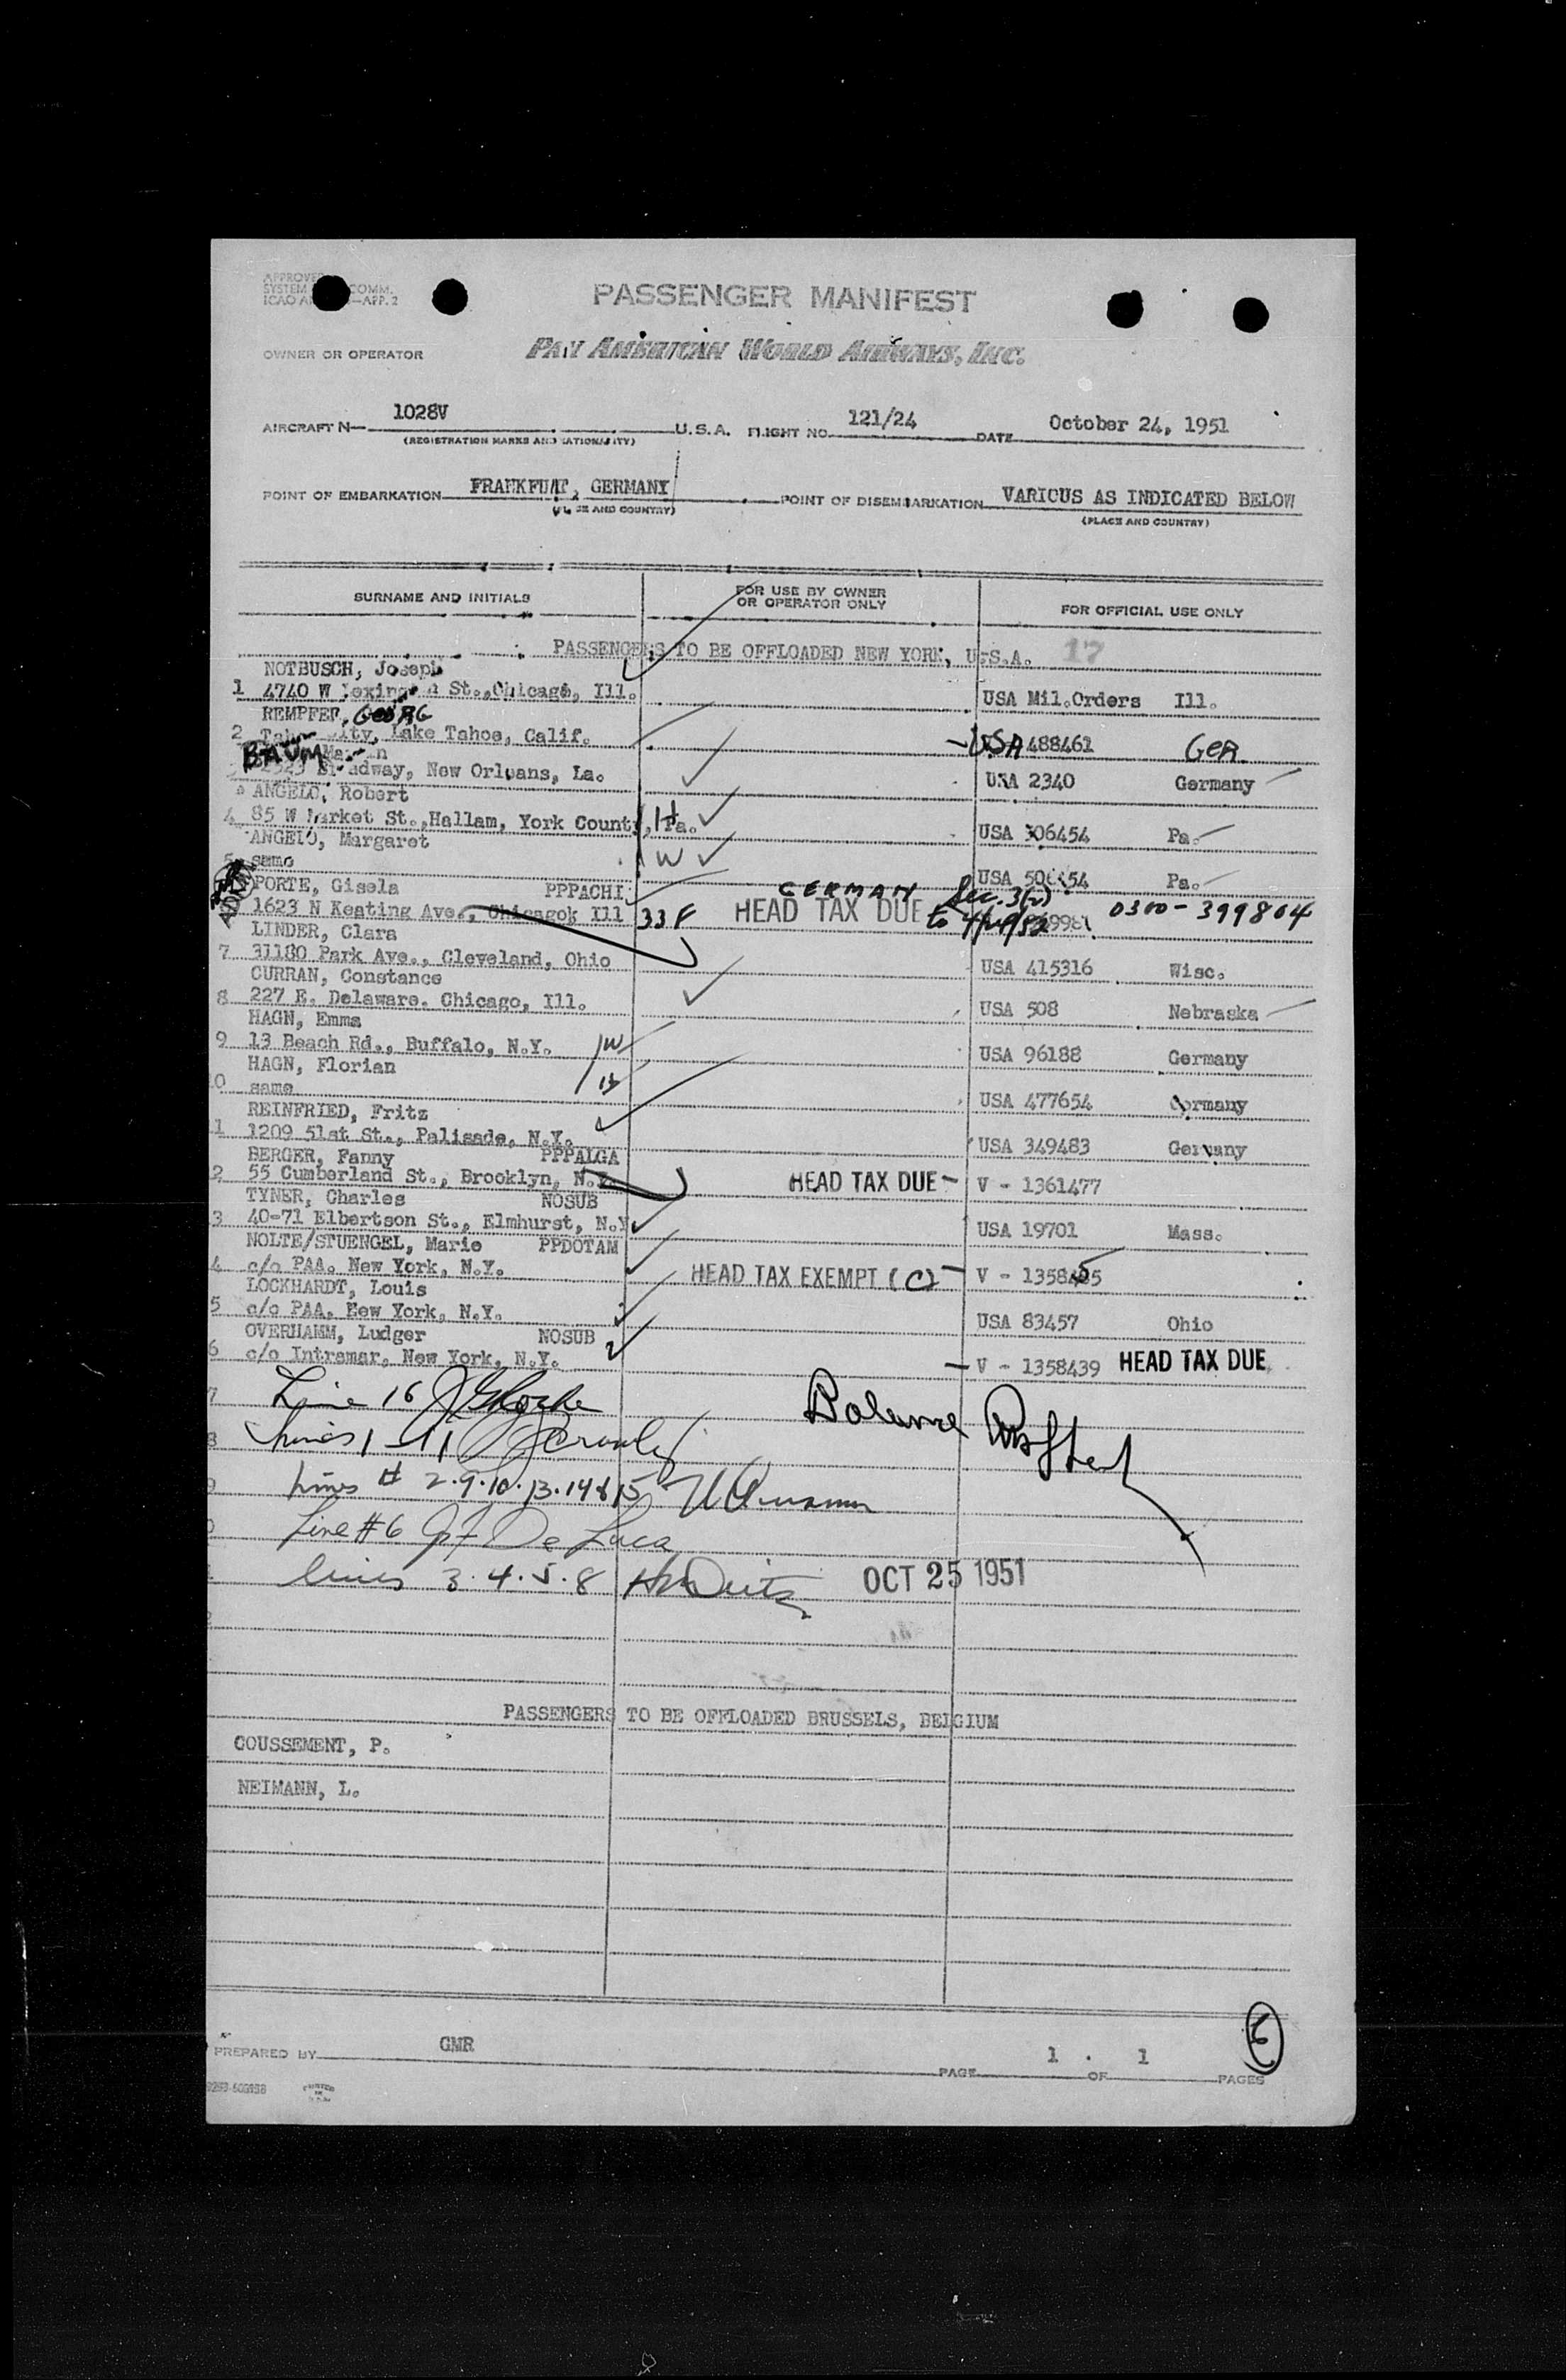 PASSENGER MANIFEST
OWNER OR OPERATOR
PAN AMERICAN WORLD AIRWAYS, INC.
AIRCRAFT N— 1028V U.S.A. FLIGHT NO. 121/24 DATE October 24, 1951
(REGISTRATION MARKS AND NATIONALITY)
POINT OF EMBARKATION FRANKFURT, GERMANY POINT OF DISEMBARKATION VARIOUS AS INDICATED BELOW
(PLACE AND COUNTRY) (PLACE AND COUNTRY)
SURNAME AND INITIALS FOR USE BY OWNER OR OPERATOR ONLY FOR OFFICIAL USE ONLY
PASSENGERS TO BE OFFLOADED NEW YORK, U.S.A. 17
NOTBUSCH, Joseph
1 4740 W Lexington St., Chicago, Ill. USA Mil.Orders Ill.
REMPFER, GEORG
2 City, Lake Tahoe, Calif. USA 488461 GER
BAUM
Broadway, New Orleans, La. USA 2340 Germany
ANGELO, Robert
4 85 W Market St.,Hallam, York County, Pa. 1H USA 306454 Pa.
ANGELO, Margaret
5 same 1W USA Pa.
PORTE, Gisela PPPACHI GERMAN Sec. 3(2)
1623 N Keating Ave., Chicagok Ill 33 F HEAD TAX DUE to 0300-399804
LINDER, Clara
7 31180 Park Ave., Cleveland, Ohio USA 415316 Wisc.
CURRAN, Constance
8 227 E. Delaware. Chicago, Ill. USA 508 Nebraska
HAGN, Emma
9 13 Beach Rd., Buffalo, N.Y. 1W USA 96188 Germany
HAGN, Florian
0 same USA 477654 Germany
REINFRIED, Fritz
1 1209 51st St., Palisade, N.Y. USA 349483 Germany
BERGER, Fanny PPPALGA
2 55 Cumberland St., Brooklyn, N.Y. HEAD TAX DUE - V - 1361477
TYNER, Charles NOSUB
3 40-71 Elbertson St., Elmhurst, N.Y. USA 19701 Mass.
NOLTE/STUENGEL, Marie PPDOTAM
4 c/o PAA. New York, N.Y. HEAD TAX EXEMPT (C) - V -
LOCKHARDT, Louis
5 c/o PAA. New York, N.Y. USA 83457 Ohio
OVERHAMM, Ludger NOSUB
6 c/o Intramar, New York, N.Y. - V - 1358439 HEAD TAX DUE
7 Line 16
Lines 1 - 11 Balance
Lines # 2.9.10.13.14&15
Line #6 De Luca
lines 3.4.5.8 OCT 25 1951
PASSENGERS TO BE OFFLOADED BRUSSELS, BELGIUM
COUSSEMENT, P.
NEIMANN, L.
PREPARED BY GMR PAGE 1 OF 1 PAGES